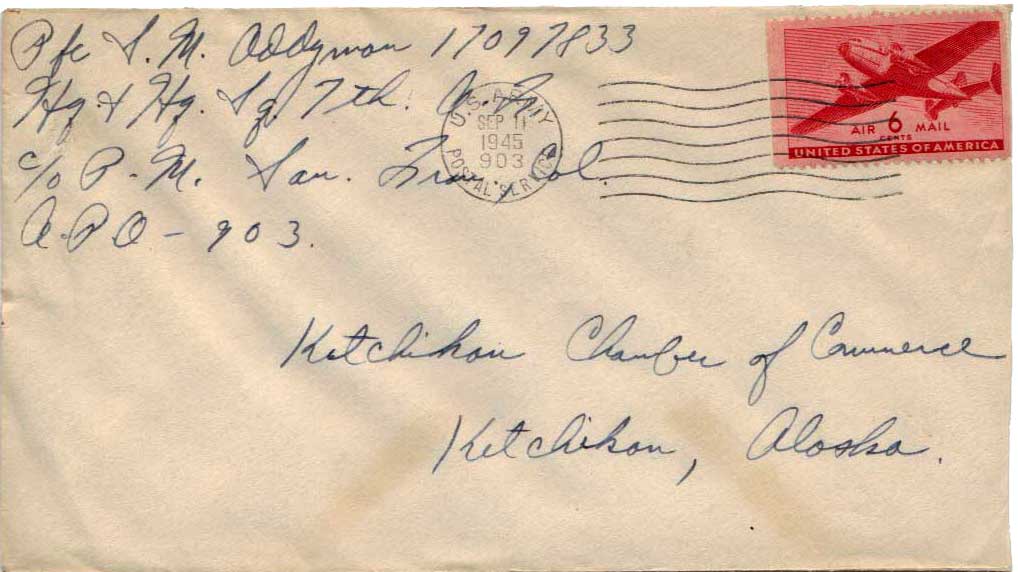 Pfc S. M. Oddyman 17097833
Hq. & Hq. Sq. 7th. A.F.
c/o P. M. San. Fran, Cal.
A.P.O - 903.
U.S. ARMY
SEP 11
1945
903
POSTAL SERVICE
AIR 6 MAIL
CENTS
UNITED STATES OF AMERICA
Ketchikan Chamber of Commerce
Ketchikan, Alaska.